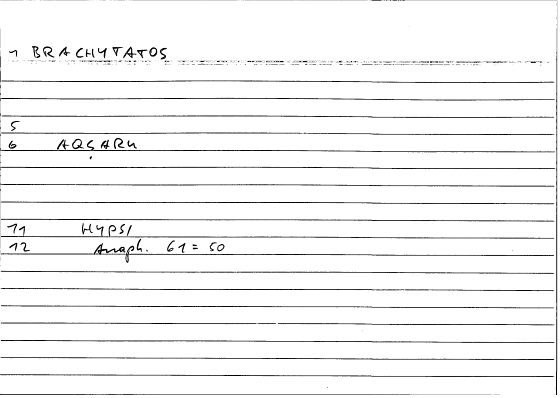 1 BRACHYTATOS
5
6 AQṢARU
11 HYPSI
12 Anaph. 61 = 50